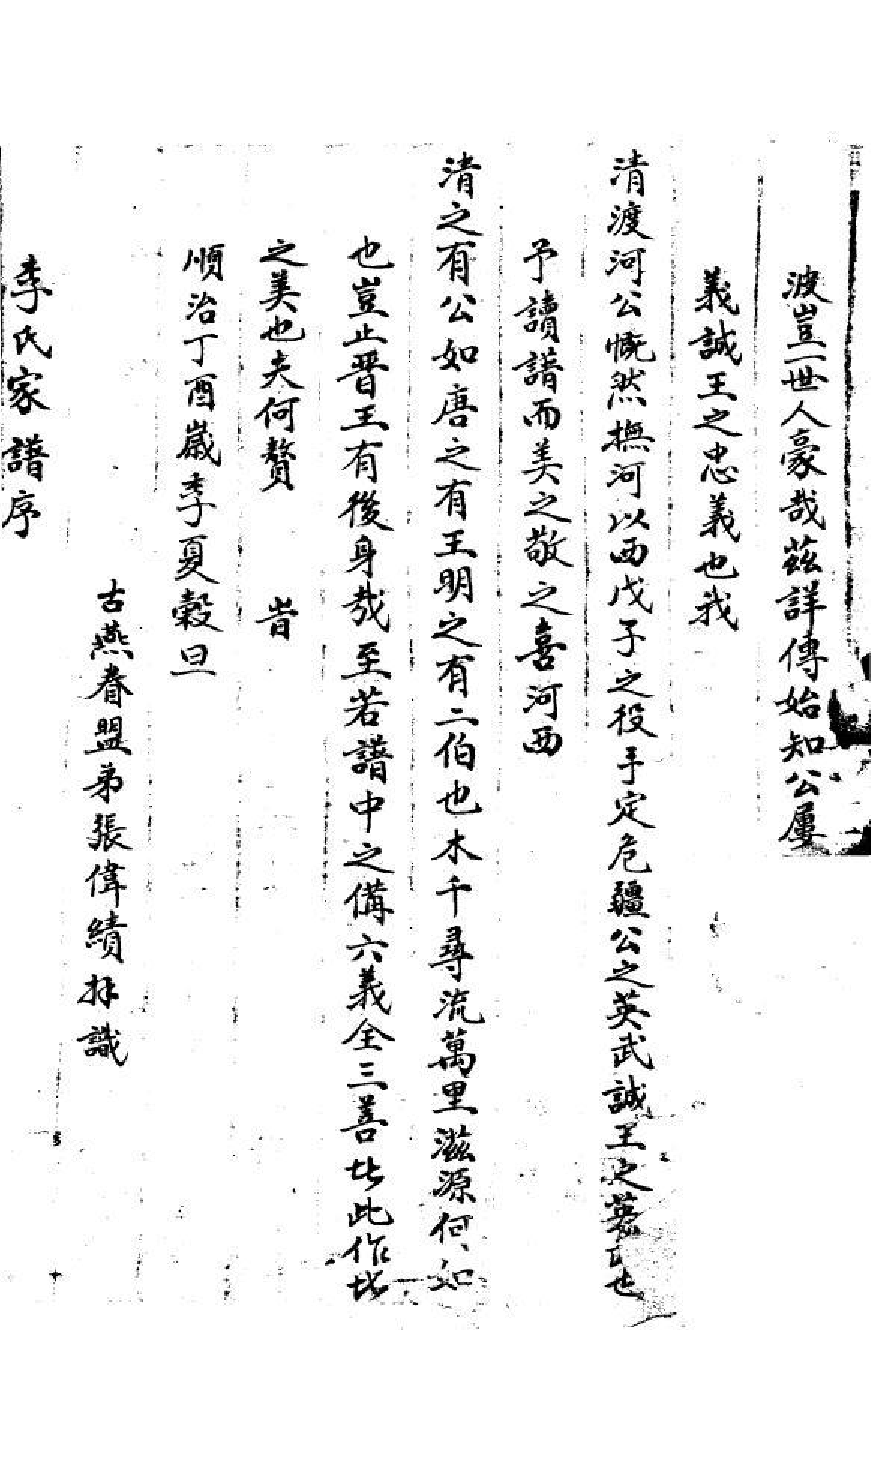 波豈一世人豪哉茲詳傳始知公屢
義誠王之忠義也我
清渡河公慨然撫河以西戊子之役手定危疆公之英武誠王之也
予讀譜而美之敬之喜河西
清之有公如唐之有王明之有二伯也木千尋流萬里滋源何如
也豈止晋王有後身哉至若譜中之備六義全三善比此作皆
之美也夫何贅 旹
順治丁酉歲季夏穀旦
古燕眷盟弟張偉績拜識
李氏家譜序